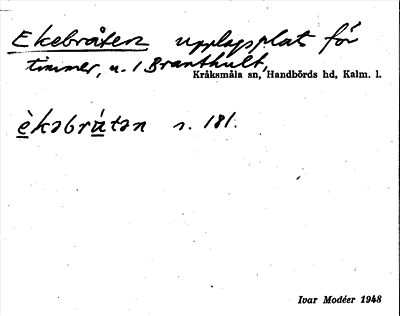 Ekebråten upplagsplats för
timmer, u. 1 Branthult,
Kråksmåla sn, Handbörds hd, Kalm. l.
èkəbrátən s. 181.
Ivar Modéer 1948